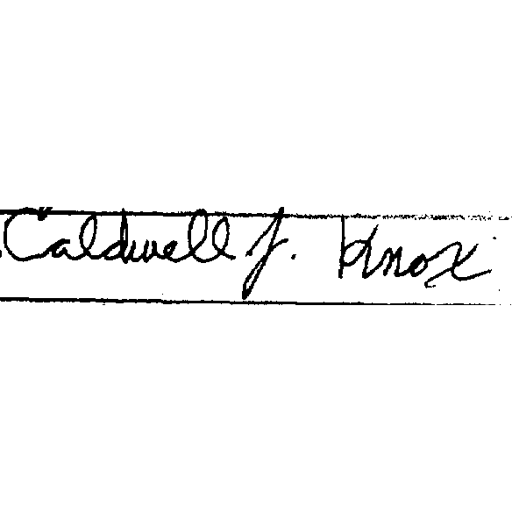 Caldwell J. Knox